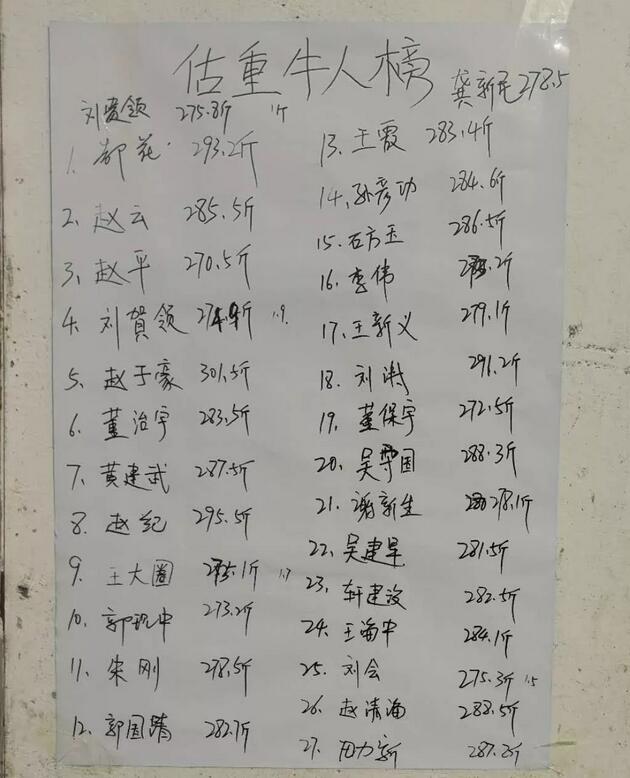 估重牛人榜
龚新民278.5
刘贺领 275.8斤
1. 郝花 293.2斤
2. 赵云 285.5斤
3. 赵平 270.5斤
4. 刘贺领 274.9斤 1.9
5. 赵于豪 301.5斤
6. 董治宇 283.5斤
7. 黄建武 287.5斤
8. 赵纪 295.5斤
9. 王大圈 275.1斤 1.7
10. 郭现中 273.2斤
11. 朱刚 278.5斤
12. 郭国靖 282.1斤
13. 王霞 283.4斤
14. 孙彦功 284.6斤
15. 石方玉 286.5斤
16. 李伟
17. 王新义 279.1斤
18. 刘洪 291.2斤
19. 董保宇 272.5斤
20. 吴国 288.3斤
21. 谢新生 278.1斤
22. 吴建早 281.5斤
23. 轩建设 282.5斤
24. 王海中 284.1斤
25. 刘会 275.3斤 1.5
26. 赵清海 288.5斤
27. 田力新 287.2斤